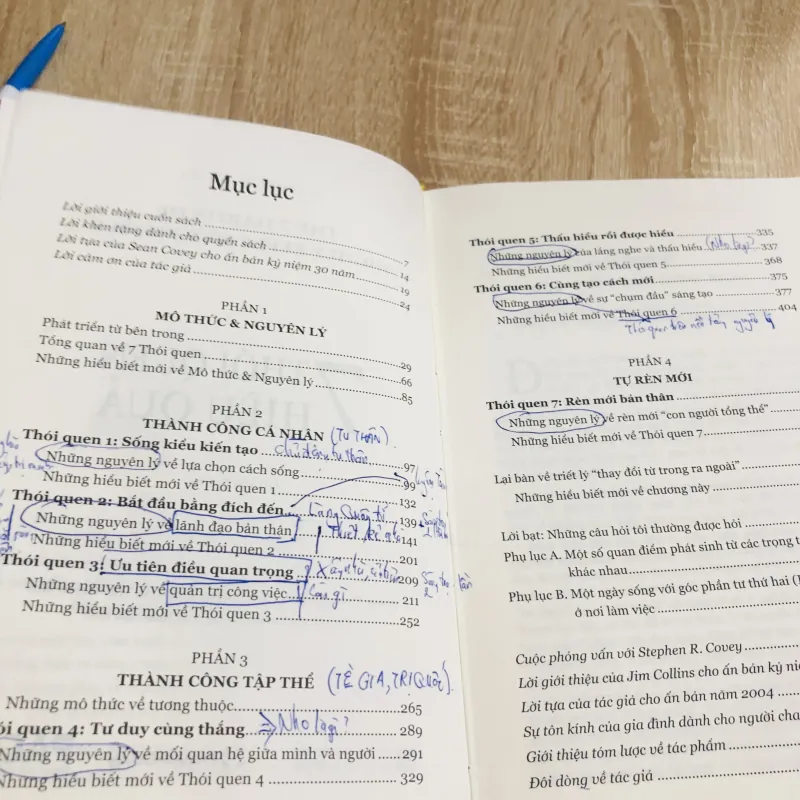 Mục lục
Lời giới thiệu cuốn sách ........ 7
Lời khen tặng dành cho quyển sách ........ 14
Lời tựa của Sean Covey cho ấn bản kỷ niệm 30 năm ........ 19
Lời cảm ơn của tác giả ........ 24
PHẦN 1
MÔ THỨC & NGUYÊN LÝ
Phát triển từ bên trong ........ 29
Tổng quan về 7 Thói quen ........ 66
Những hiểu biết mới về Mô thức & Nguyên lý ........ 85
PHẦN 2
THÀNH CÔNG CÁ NHÂN (TU THÂN)
Thói quen 1: Sống kiểu kiến tạo ........ 97
Những nguyên lý về lựa chọn cách sống ........ 99
Những hiểu biết mới về Thói quen 1 ........ 132
Thói quen 2: Bắt đầu bằng đích đến ........ 139
Những nguyên lý về lãnh đạo bản thân ........ 141
Những hiểu biết mới về Thói quen 2 ........ 201
Thói quen 3: Ưu tiên điều quan trọng ........ 209
Những nguyên lý về quản trị công việc ........ 211
Những hiểu biết mới về Thói quen 3 ........ 252
PHẦN 3
THÀNH CÔNG TẬP THỂ (TỀ GIA, TRỊ QUỐC)
Những mô thức về tương thuộc ........ 265
ói quen 4: Tư duy cùng thắng ........ 289
Những nguyên lý về mối quan hệ giữa mình và người ........ 291
Những hiểu biết mới về Thói quen 4 ........ 329
Thói quen 5: Thấu hiểu rồi được hiểu ........ 335
Những nguyên lý của lắng nghe và thấu hiểu ........ 337
Những hiểu biết mới về Thói quen 5 ........ 368
Thói quen 6: Cùng tạo cách mới ........ 375
Những nguyên lý về sự "chụm đầu" sáng tạo ........ 377
Những hiểu biết mới về Thói quen 6 ........ 404
PHẦN 4
TỰ RÈN MỚI
Thói quen 7: Rèn mới bản thân
Những nguyên lý về rèn mới "con người tổng thể"
Những hiểu biết mới về Thói quen 7
Lại bàn về triết lý "thay đổi từ trong ra ngoài"
Những hiểu biết mới về chương này
Lời bạt: Những câu hỏi tôi thường được hỏi
Phụ lục A. Một số quan điểm phát sinh từ các trọng t
khác nhau
Phụ lục B. Một ngày sống với góc phần tư thứ hai (
ở nơi làm việc
Cuộc phỏng vấn với Stephen R. Covey
Lời giới thiệu của Jim Collins cho ấn bản kỷ ni
Lời tựa của tác giả cho ấn bản năm 2004
Sự tôn kính của gia đình dành cho người cha
Giới thiệu tóm lược về tác phẩm
Đôi dòng về tác giả